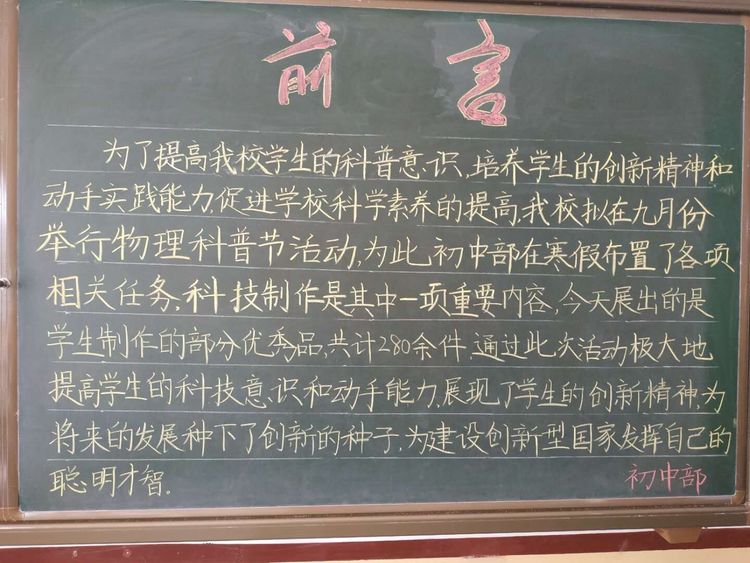 前言
为了提高我校学生的科普意识,培养学生的创新精神和
动手实践能力,促进学校科学素养的提高,我校拟在九月份
举行物理科普节活动,为此,初中部在寒假布置了各项
相关任务,科技制作是其中一项重要内容,今天展出的是
学生制作的部分优秀品,共计280余件,通过此次活动极大地
提高学生的科技意识和动手能力,展现了学生的创新精神,为
将来的发展种下了创新的种子,为建设创新型国家发挥自己的
聪明才智。
初中部